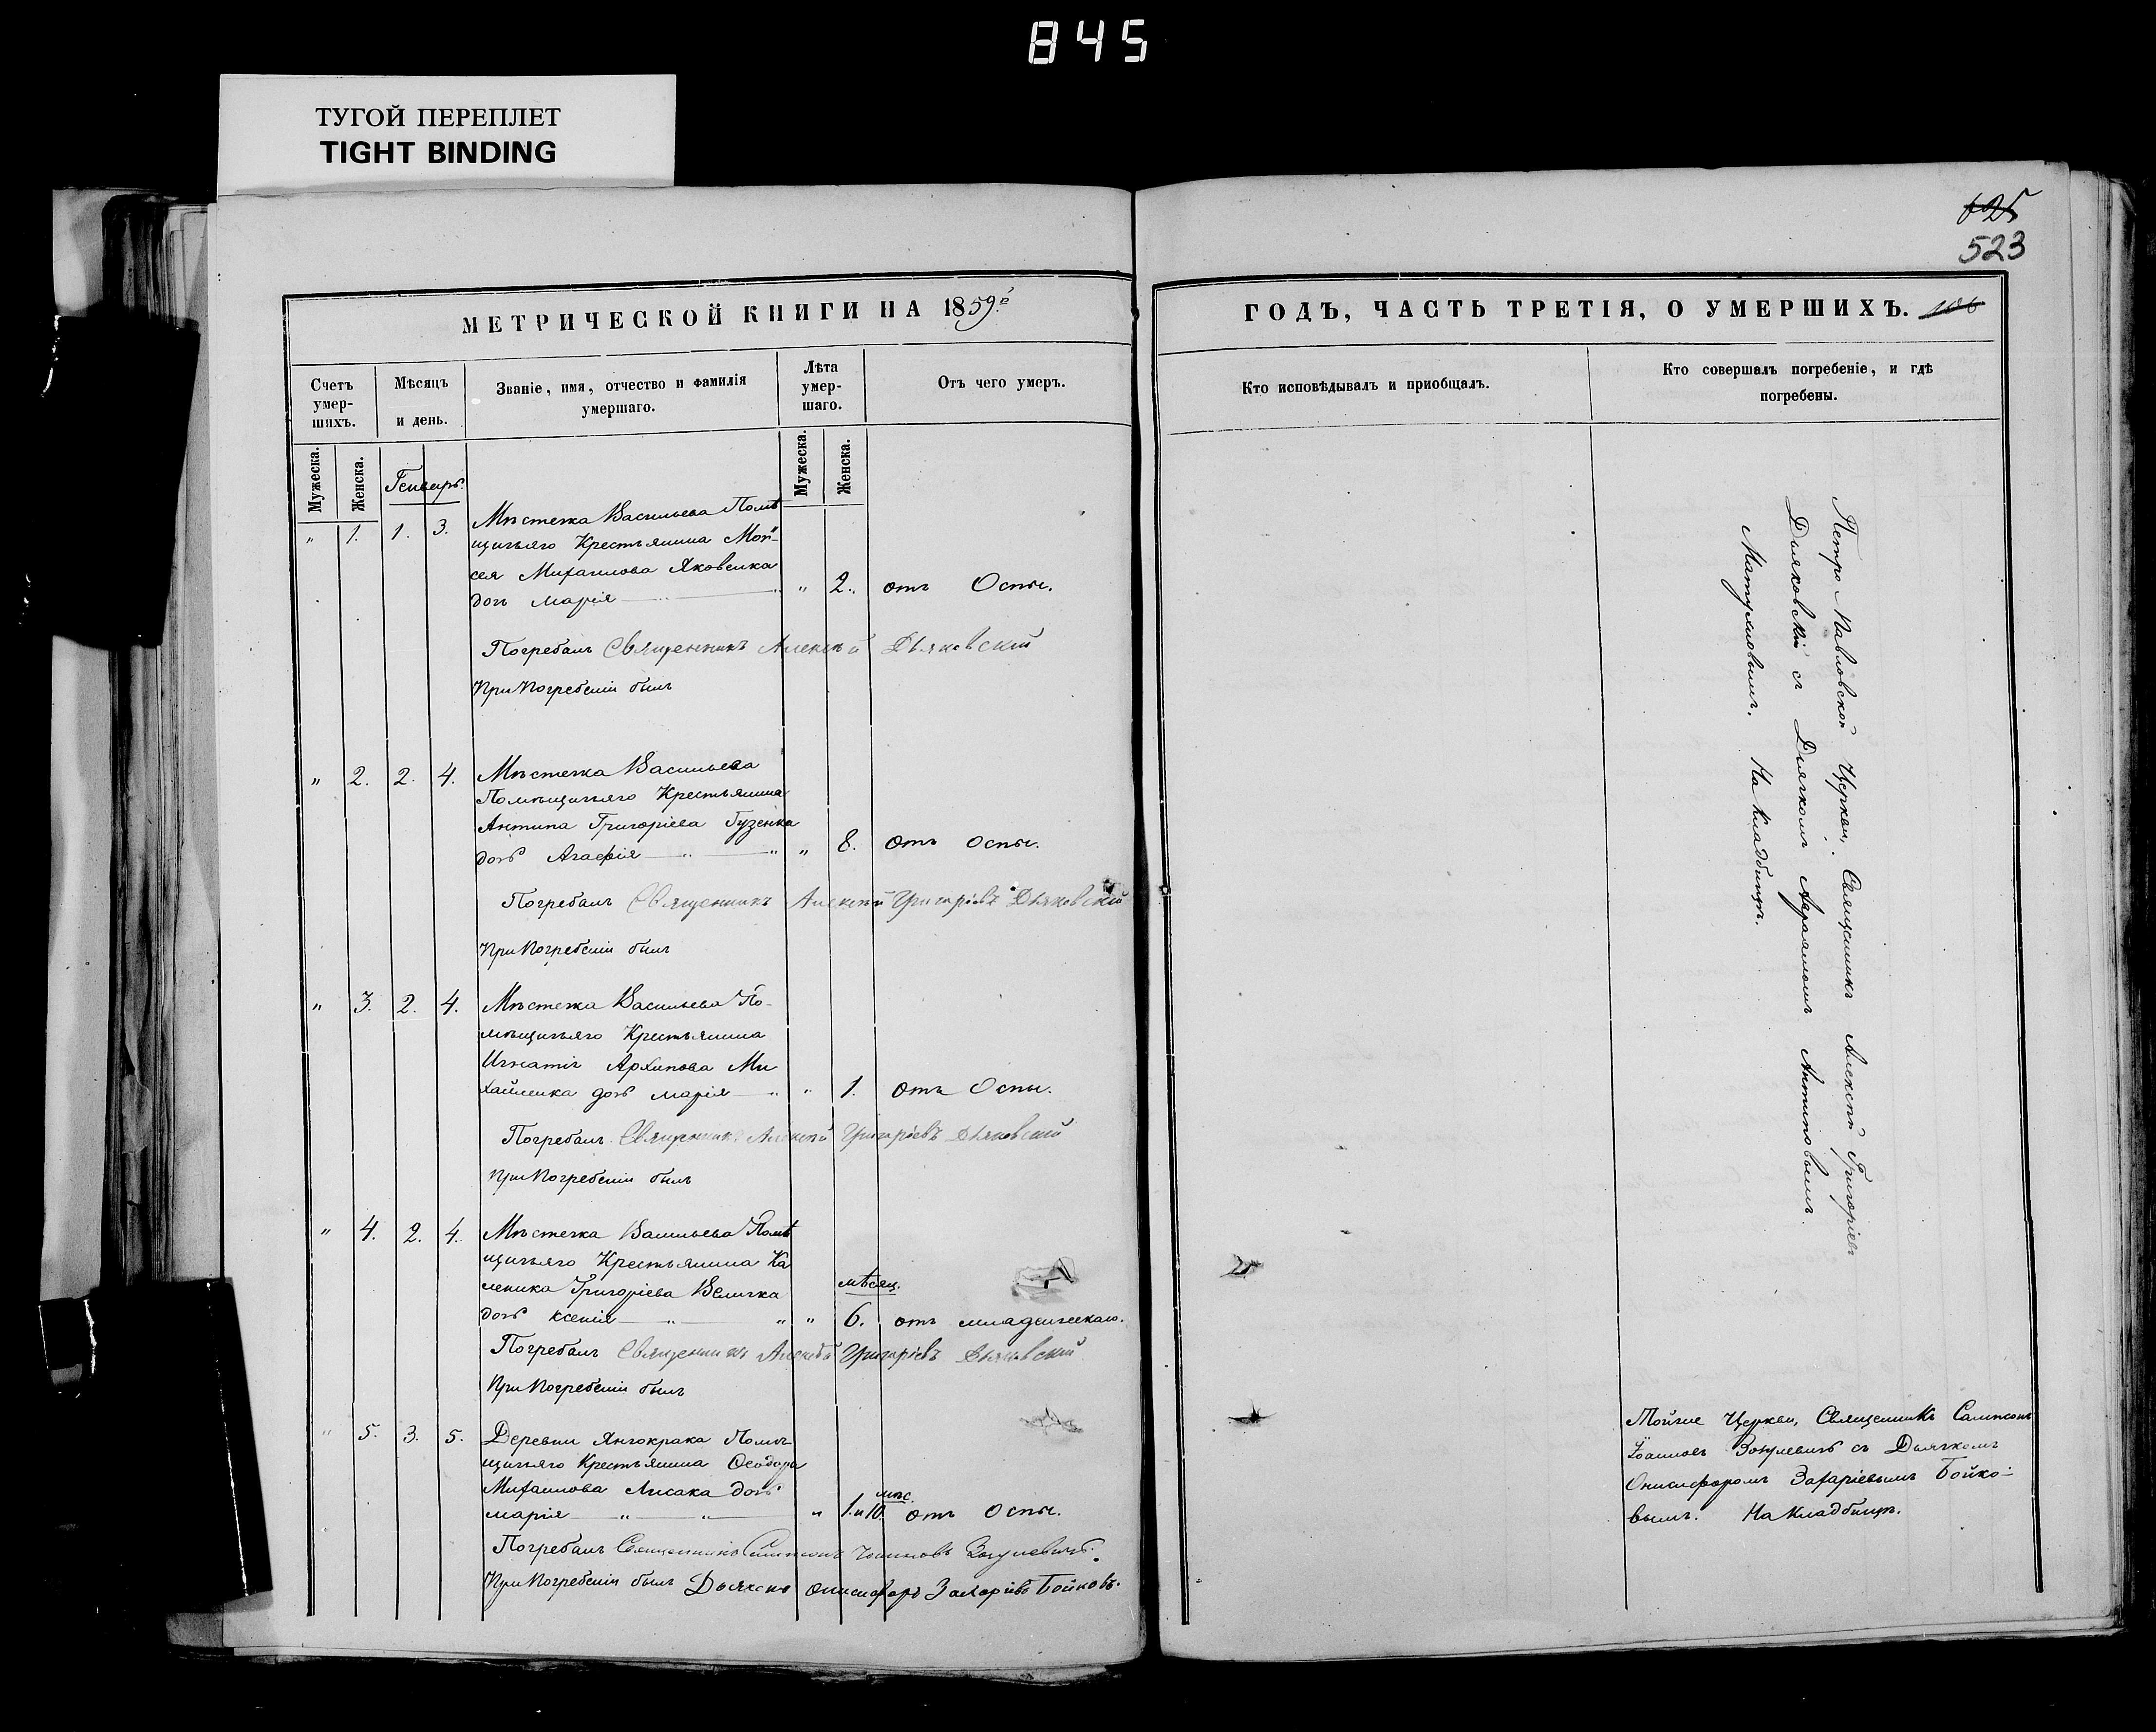 845
ТУГОЙ ПЕРЕПЛЕТ
TIGHT BINDING
МЕТРИЧЕСКОЙ КНИГИ НА 1859й
Счетъ умер-шихъ.
Мѣсяцъ и день.
Званіе, имя, отчество и фамилія умершаго.
Лѣта умер-шаго.
Отъ чего умеръ.
Мужеска.
Женска.
Генварь.
Мужеска.
Женска.
" 1. 1. 3. Мѣстечка Васильева Помѣ
щичьяго Крестьянина Мой-
сея Михаилова Яковенка
дочь Марія " 2. отъ Оспы.
Погребалъ Священникъ Алексѣй Дьяковскій
При Погребеніи былъ
" 2. 2. 4. Мѣстечка Васильева
Помѣщичьяго Крестьянина
Антипа Григоріева Гузенка
дочь Агафія " 8. отъ оспы.
Погребалъ Священникъ Алексѣй Григоріевъ Дьяковскій
При Погребеніи былъ
" 3. 2. 4. Мѣстечка Васильева По-
мѣщичьяго Крестьянина
Игнатія Архипова Ми
хайленка дочь Марія " 1. отъ Оспы.
Погребалъ Священникъ Алексѣй Григоріевъ Дьяковскій
При Погребеніи былъ
" 4. 2. 4. Мѣстечка Васильева Помѣ
щичьяго Крестьянина Ка
леника Григоріева Величка
мѣсяц.
дочь Ксенія " 6. отъ младенческаго.
Погребалъ Священникъ Алексѣй Григоріевъ Дьяковскій
При Погребеніи былъ
" 5. 3. 5. Деревни Янчокрака Помѣ
щичьяго Крестьянина Ѳеодора
Михаилова Лисака дочь
мѣс.
Марія " 1. и 10. отъ Оспы.
Погребалъ Священникъ Сампсонъ Іоанновъ
При Погребеніи былъ Дьячокъ Онисифоръ Захаріевъ Бойковъ.
625
523
ГОДЪ, ЧАСТЬ ТРЕТІЯ, О УМЕРШИХЪ.
Кто исповѣдывалъ и приобщалъ.
Кто совершалъ погребеніе, и гдѣ погребены.
Петро Павловской Церкви, Священникъ Алексѣй Григоріевъ
Дьяковскій съ Дьячкомъ Антиповымъ
На Кладбищѣ.
Тойже Церкви, Священникъ Сампсонъ
Іоанновъ съ Дьячкомъ
Онисифоромъ Захаріевымъ Бойко-
вымъ. На Кладбищѣ.